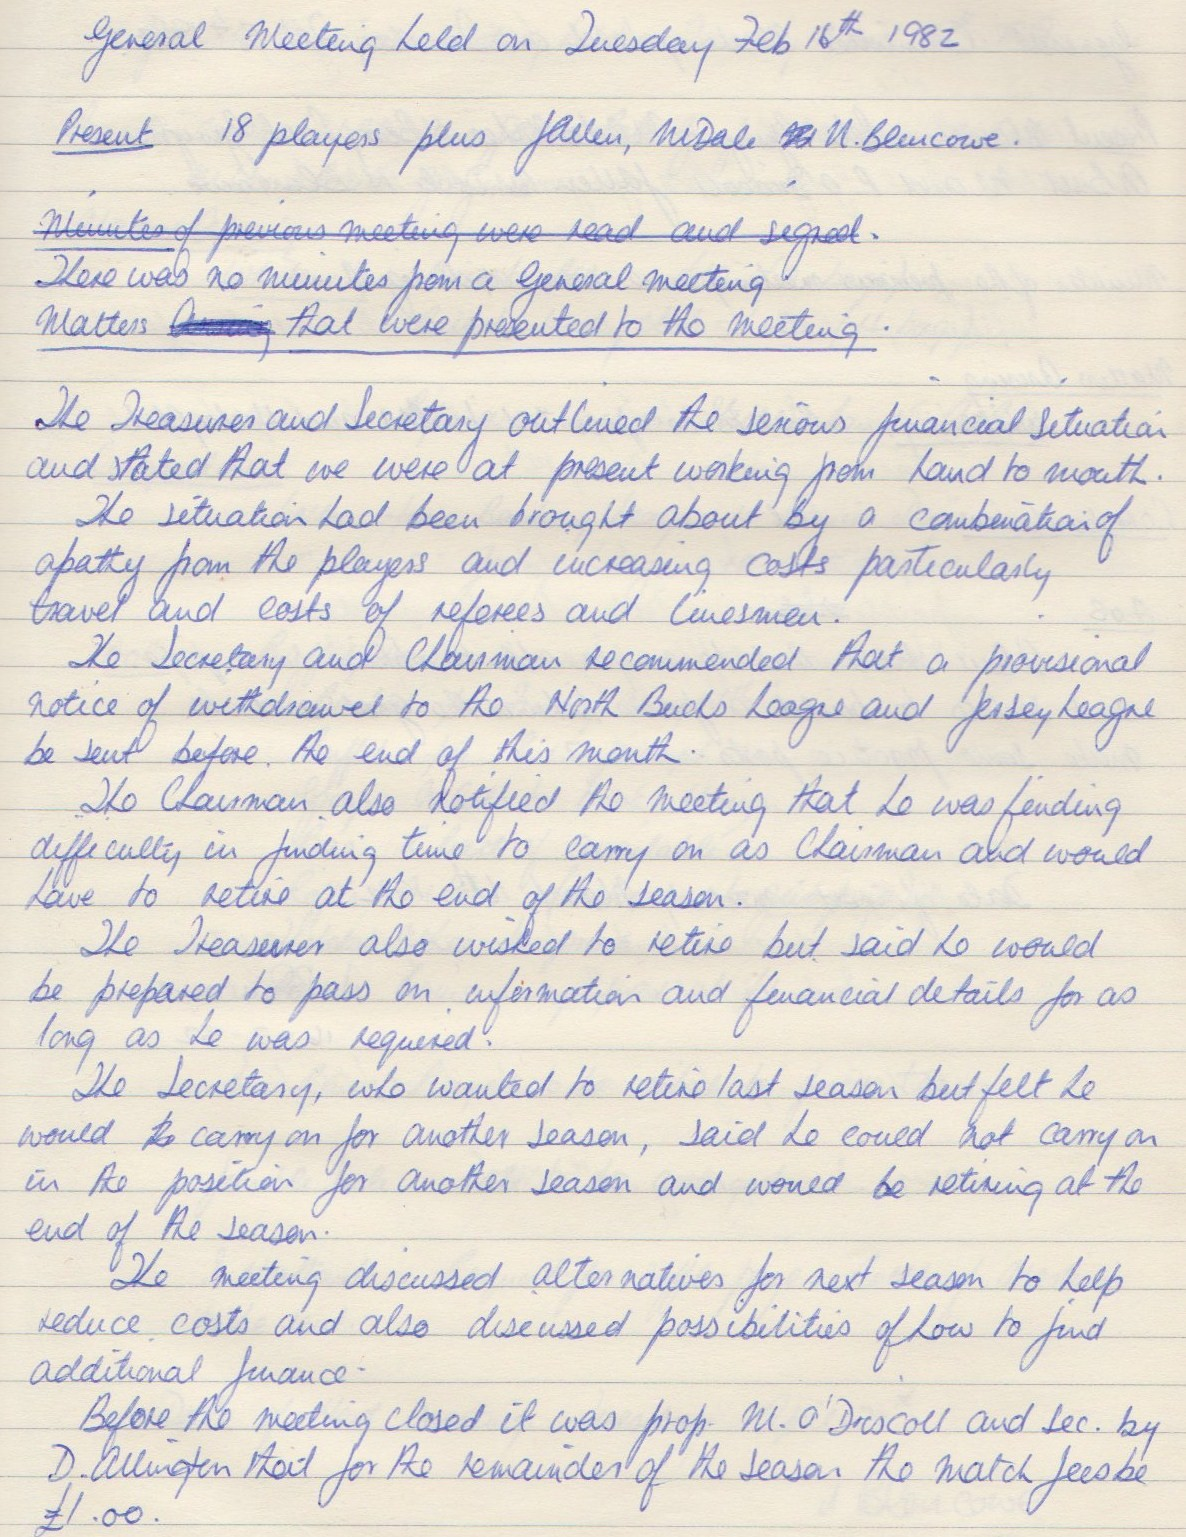 General Meeting held on Tuesday Feb 16th 1982
Present 18 players plus J Allen, M Dale N. Blencowe.
Minutes of previous meeting were read and signed.
There was no minutes from a General meeting
Matters Arising that were presented to the meeting.
The Treasurer and Secretary outlined the serious financial situation
and stated that we were at present working from hand to mouth.
The situation had been brought about by a combination of
apathy from the players and increasing costs particularly
travel and costs of referees and linesmen.
The Secretary and Chairman recommended that a provisional
notice of withdrawel to the North Bucks League and Jersey League
be sent before the end of this month.
The Chairman also notified the meeting that he was finding
difficulty in finding time to carry on as Chairman and would
have to retire at the end of the season.
The Treasurer also wished to retire but said he would
be prepared to pass on information and financial details for as
long as he was required.
The Secretary, who wanted to retire last season but felt he
would to carry on for another season, said he could not carry on
in the position for another season and would be retiring at the
end of the season.
The meeting discussed alternatives for next season to help
reduce costs and also discussed possibilities of how to find
additional finance.
Before the meeting closed it was prop. M. O'Driscoll and sec. by
D. Allington that for the remainder of the season the match fees be
£1.00.